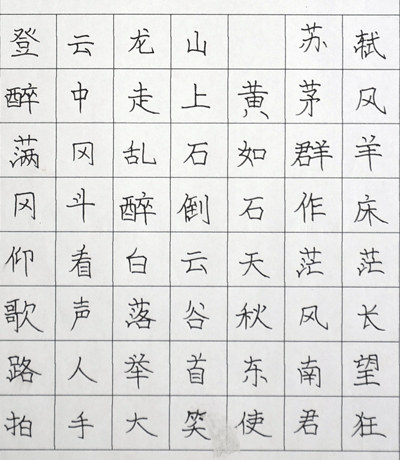 登云龙山 苏轼
醉中走上黄茅风
满冈乱石如群羊
冈斗醉倒石作床
仰看白云天茫茫
歌声落谷秋风长
路人举首东南望
拍手大笑使君狂